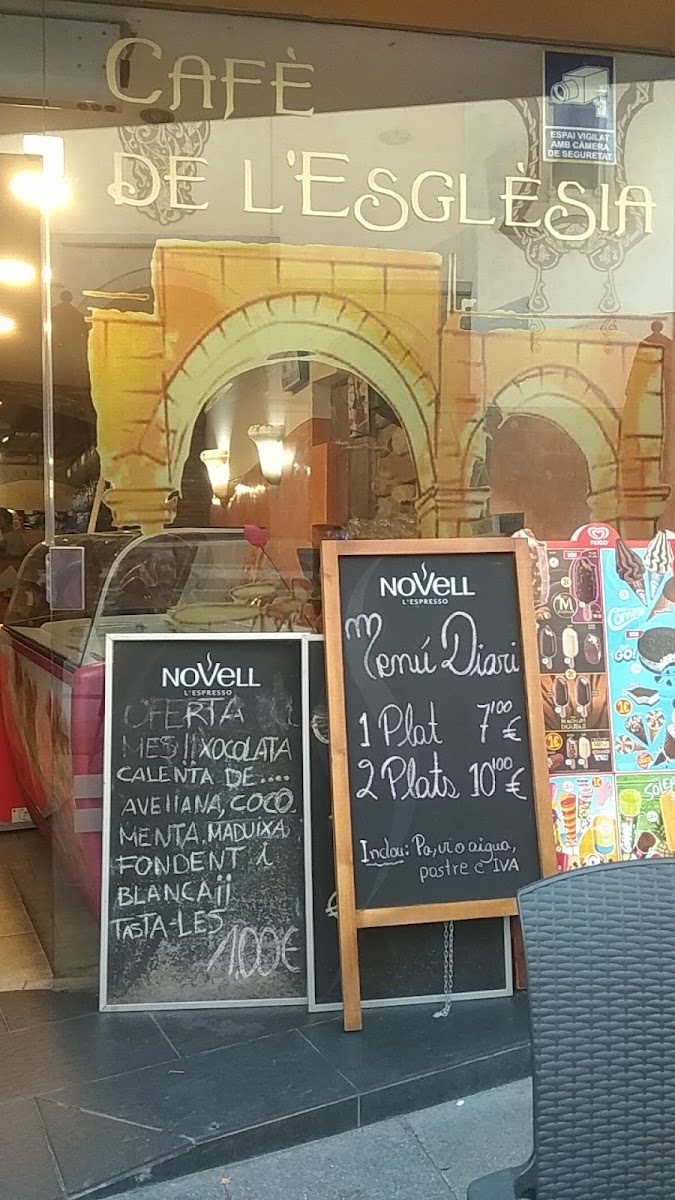 CAFÈ
DE L'ESGLÈSIA
ESPAI VIGILAT
AMB CÀMERA
DE SEGURETAT
NOVELL
L'ESPRESSO
OFERTA
MES!! XOCOLATA
CALENTA DE....
AVELLANA, COCO
MENTA, MADUIXA
FONDENT i
BLANCA¡¡
TASTA-LES
1,00€
NOVELL
L'ESPRESSO
Menú Diari
1 Plat 7'00€
2 Plats 10'00€
Inclou: Pa, vi o aigua,
postre e IVA
FRIGO
M
GO!
1€